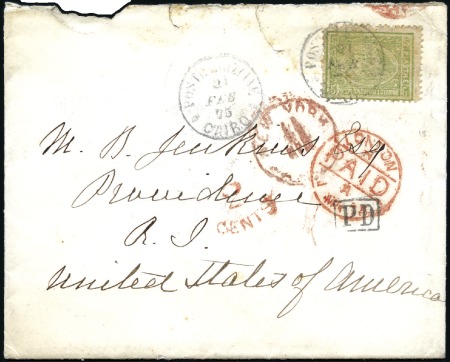 POSTE
21
FEB
75
CAIRO
NEW YORK
LONDON
PAID
2
CENTS
PD
M. B. Jenkins Esq
Providence
R. I.
United States of America